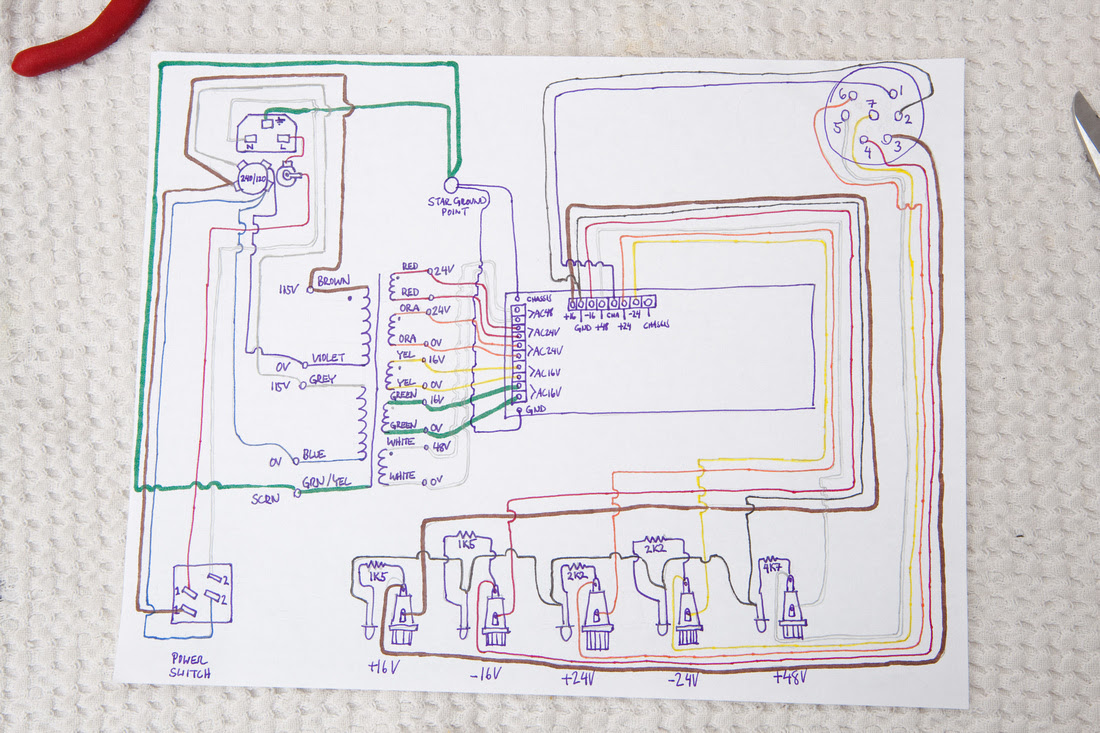 6
1
7
5
2
4
3
N
L
240/120
STAR GROUND
POINT
115V
BROWN
RED
24V
RED
ORA
24V
ORA
0V
YEL
16V
YEL
0V
GREEN
16V
GREEN
0V
WHITE
48V
WHITE
0V
CHASSIS
>AC48
>AC24V
>AC24V
>AC16V
>AC16V
GND
+16
-16
CHA
-24
GND
+48
+24
CHASSIS
0V
VIOLET
115V
GREY
0V
BLUE
SCRN
GRN/YEL
1
2
1
2
POWER
SWITCH
1K5
1K5
2K2
2K2
4K7
+16V
-16V
+24V
-24V
+48V